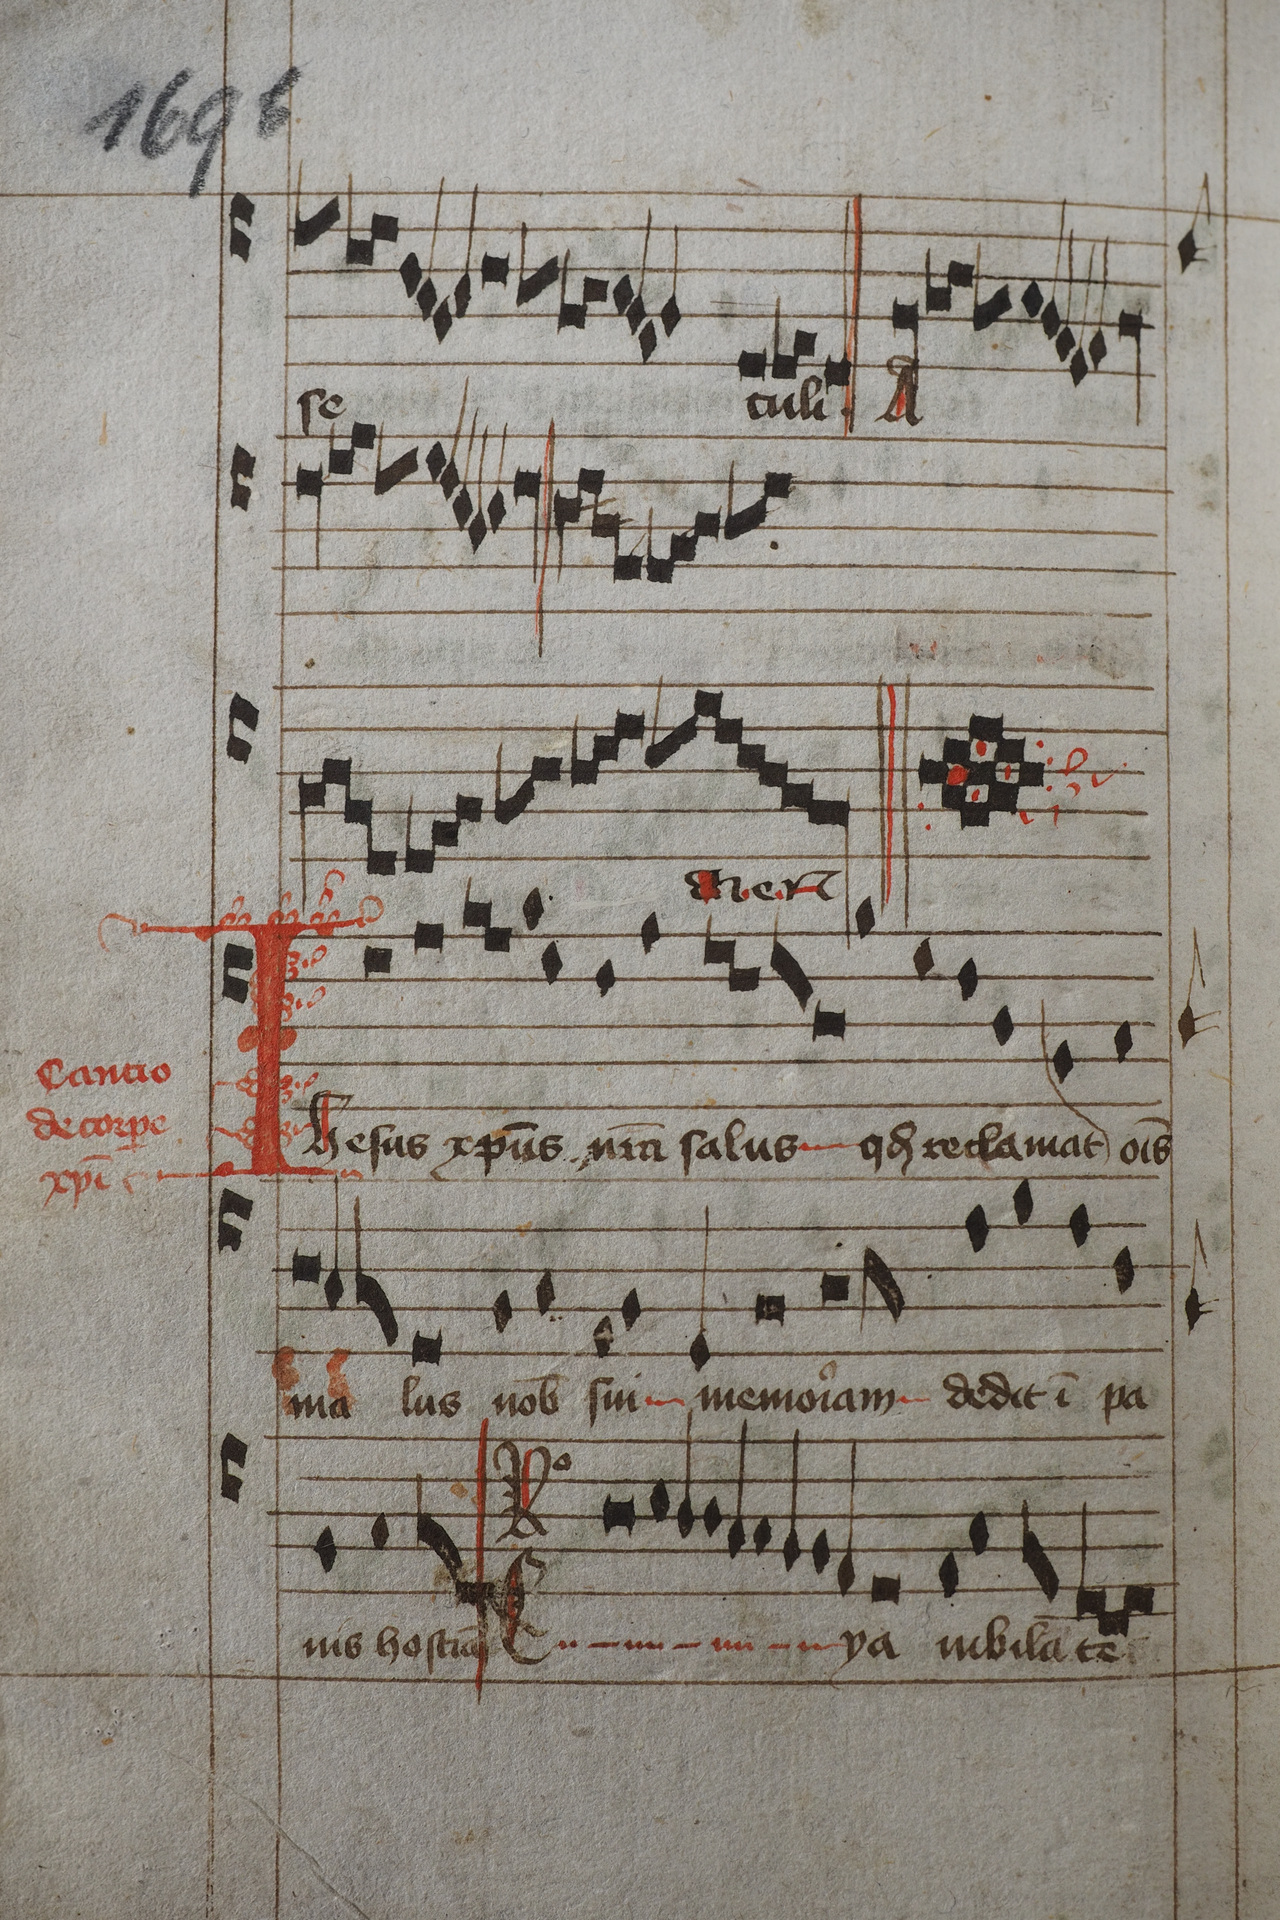 169b
se culi. A
Amen
Cantio
de corpe
xpi
Ihesus xp̄us nr̄a salus qd̄ reclamat oīs
ma lus nob̄ sui memoīam dedit ī pa
R°
nis hostiā E ya iubila te